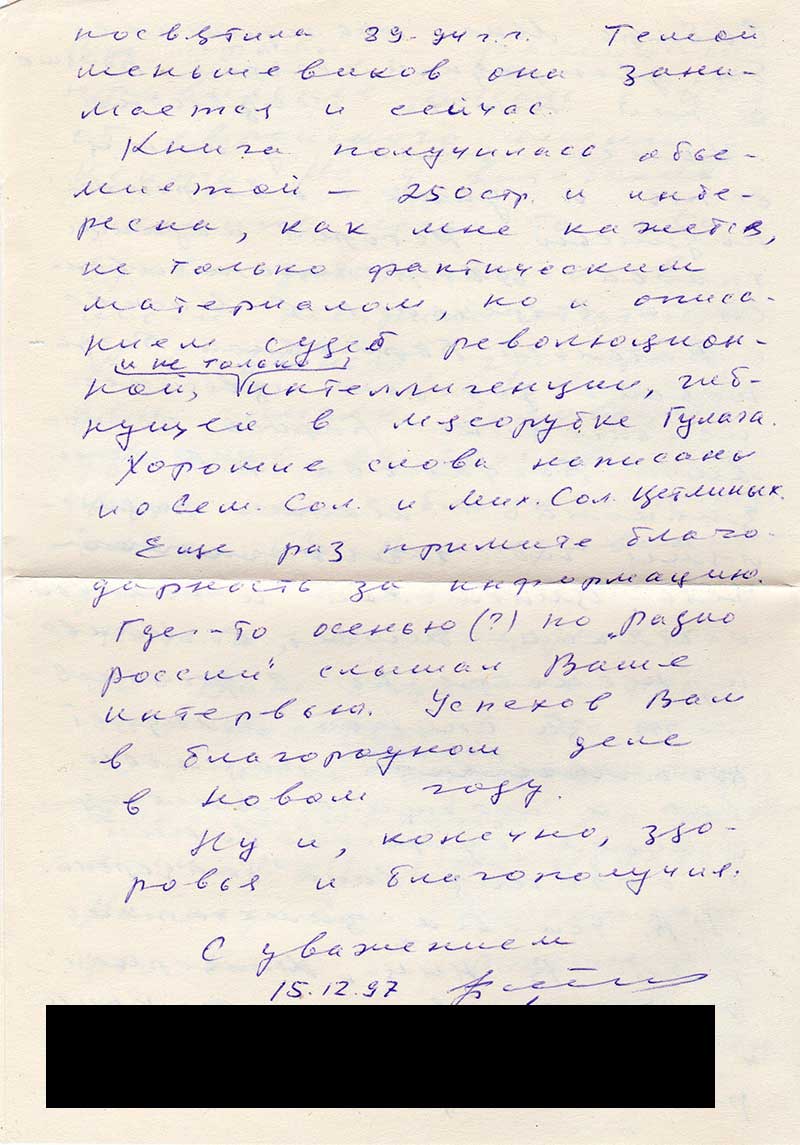 посвятила 39-94 г.г. Темой
меньшевиков она зани-
мается и сейчас.
Книга получилась объе-
мистой — 250 стр. и инте-
ресна, как мне кажется,
не только фактическим
материалом, но и описа-
нием судеб революцион-
и не только
ной, интеллигенции, гиб-
нущей в мясорубке Гулага.
Хорошие слова написаны
и о Сем. Сол. и Мих. Сол. Цетлиных.
Еще раз примите благо-
дарность за информацию.
Где-то осенью (?) по „Радио
России" слышал Ваше
интервью. Успехов Вам
в благородном деле
в Новом году.
Ну и, конечно, здо-
ровья и благополучия.
С уважением
15.12.97